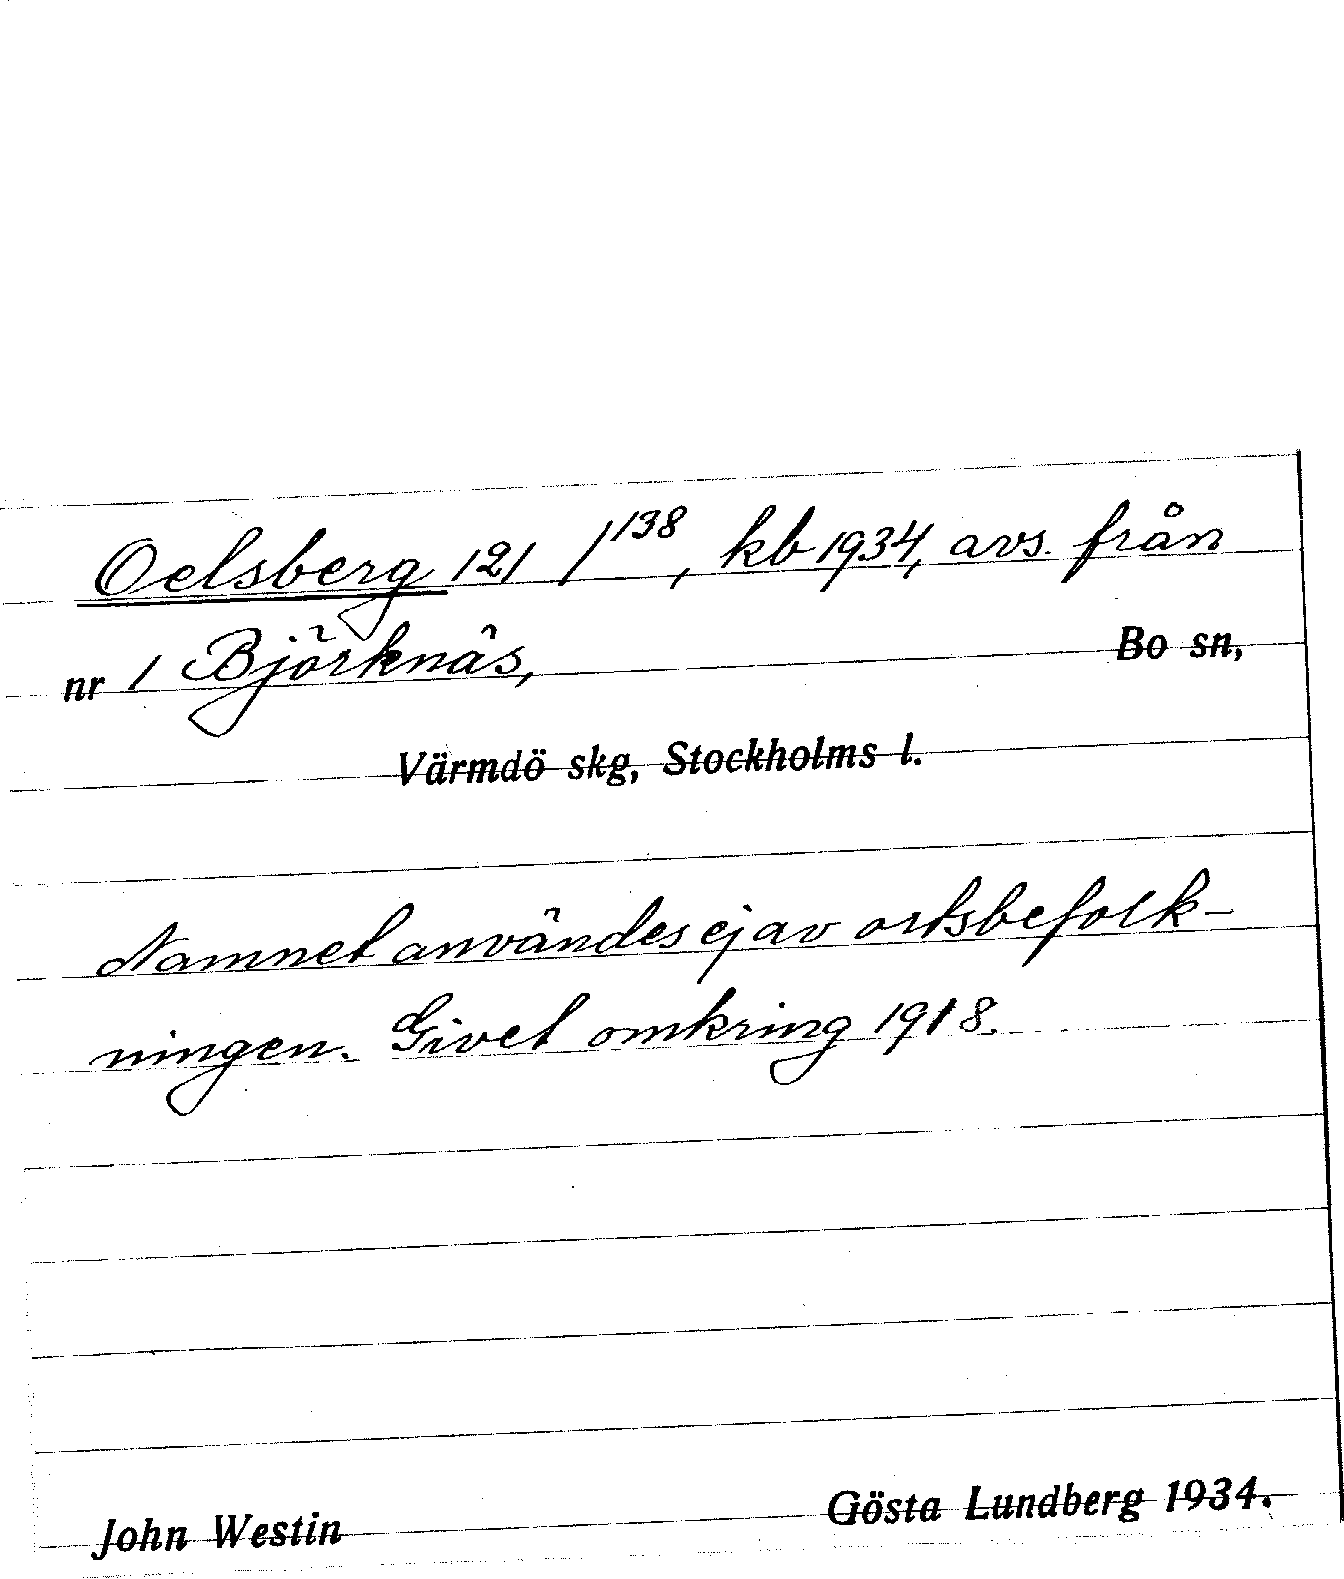 Oelsberg 1²1 /¹³⁸, kb 1934, avs. från
nr 1 Björknäs, Bo sn,
Värmdö skg, Stockholms l.
Namnet användes ej av ortsbefolk-
ningen. Givet omkring 1918.
John Westin Gösta Lundberg 1934.